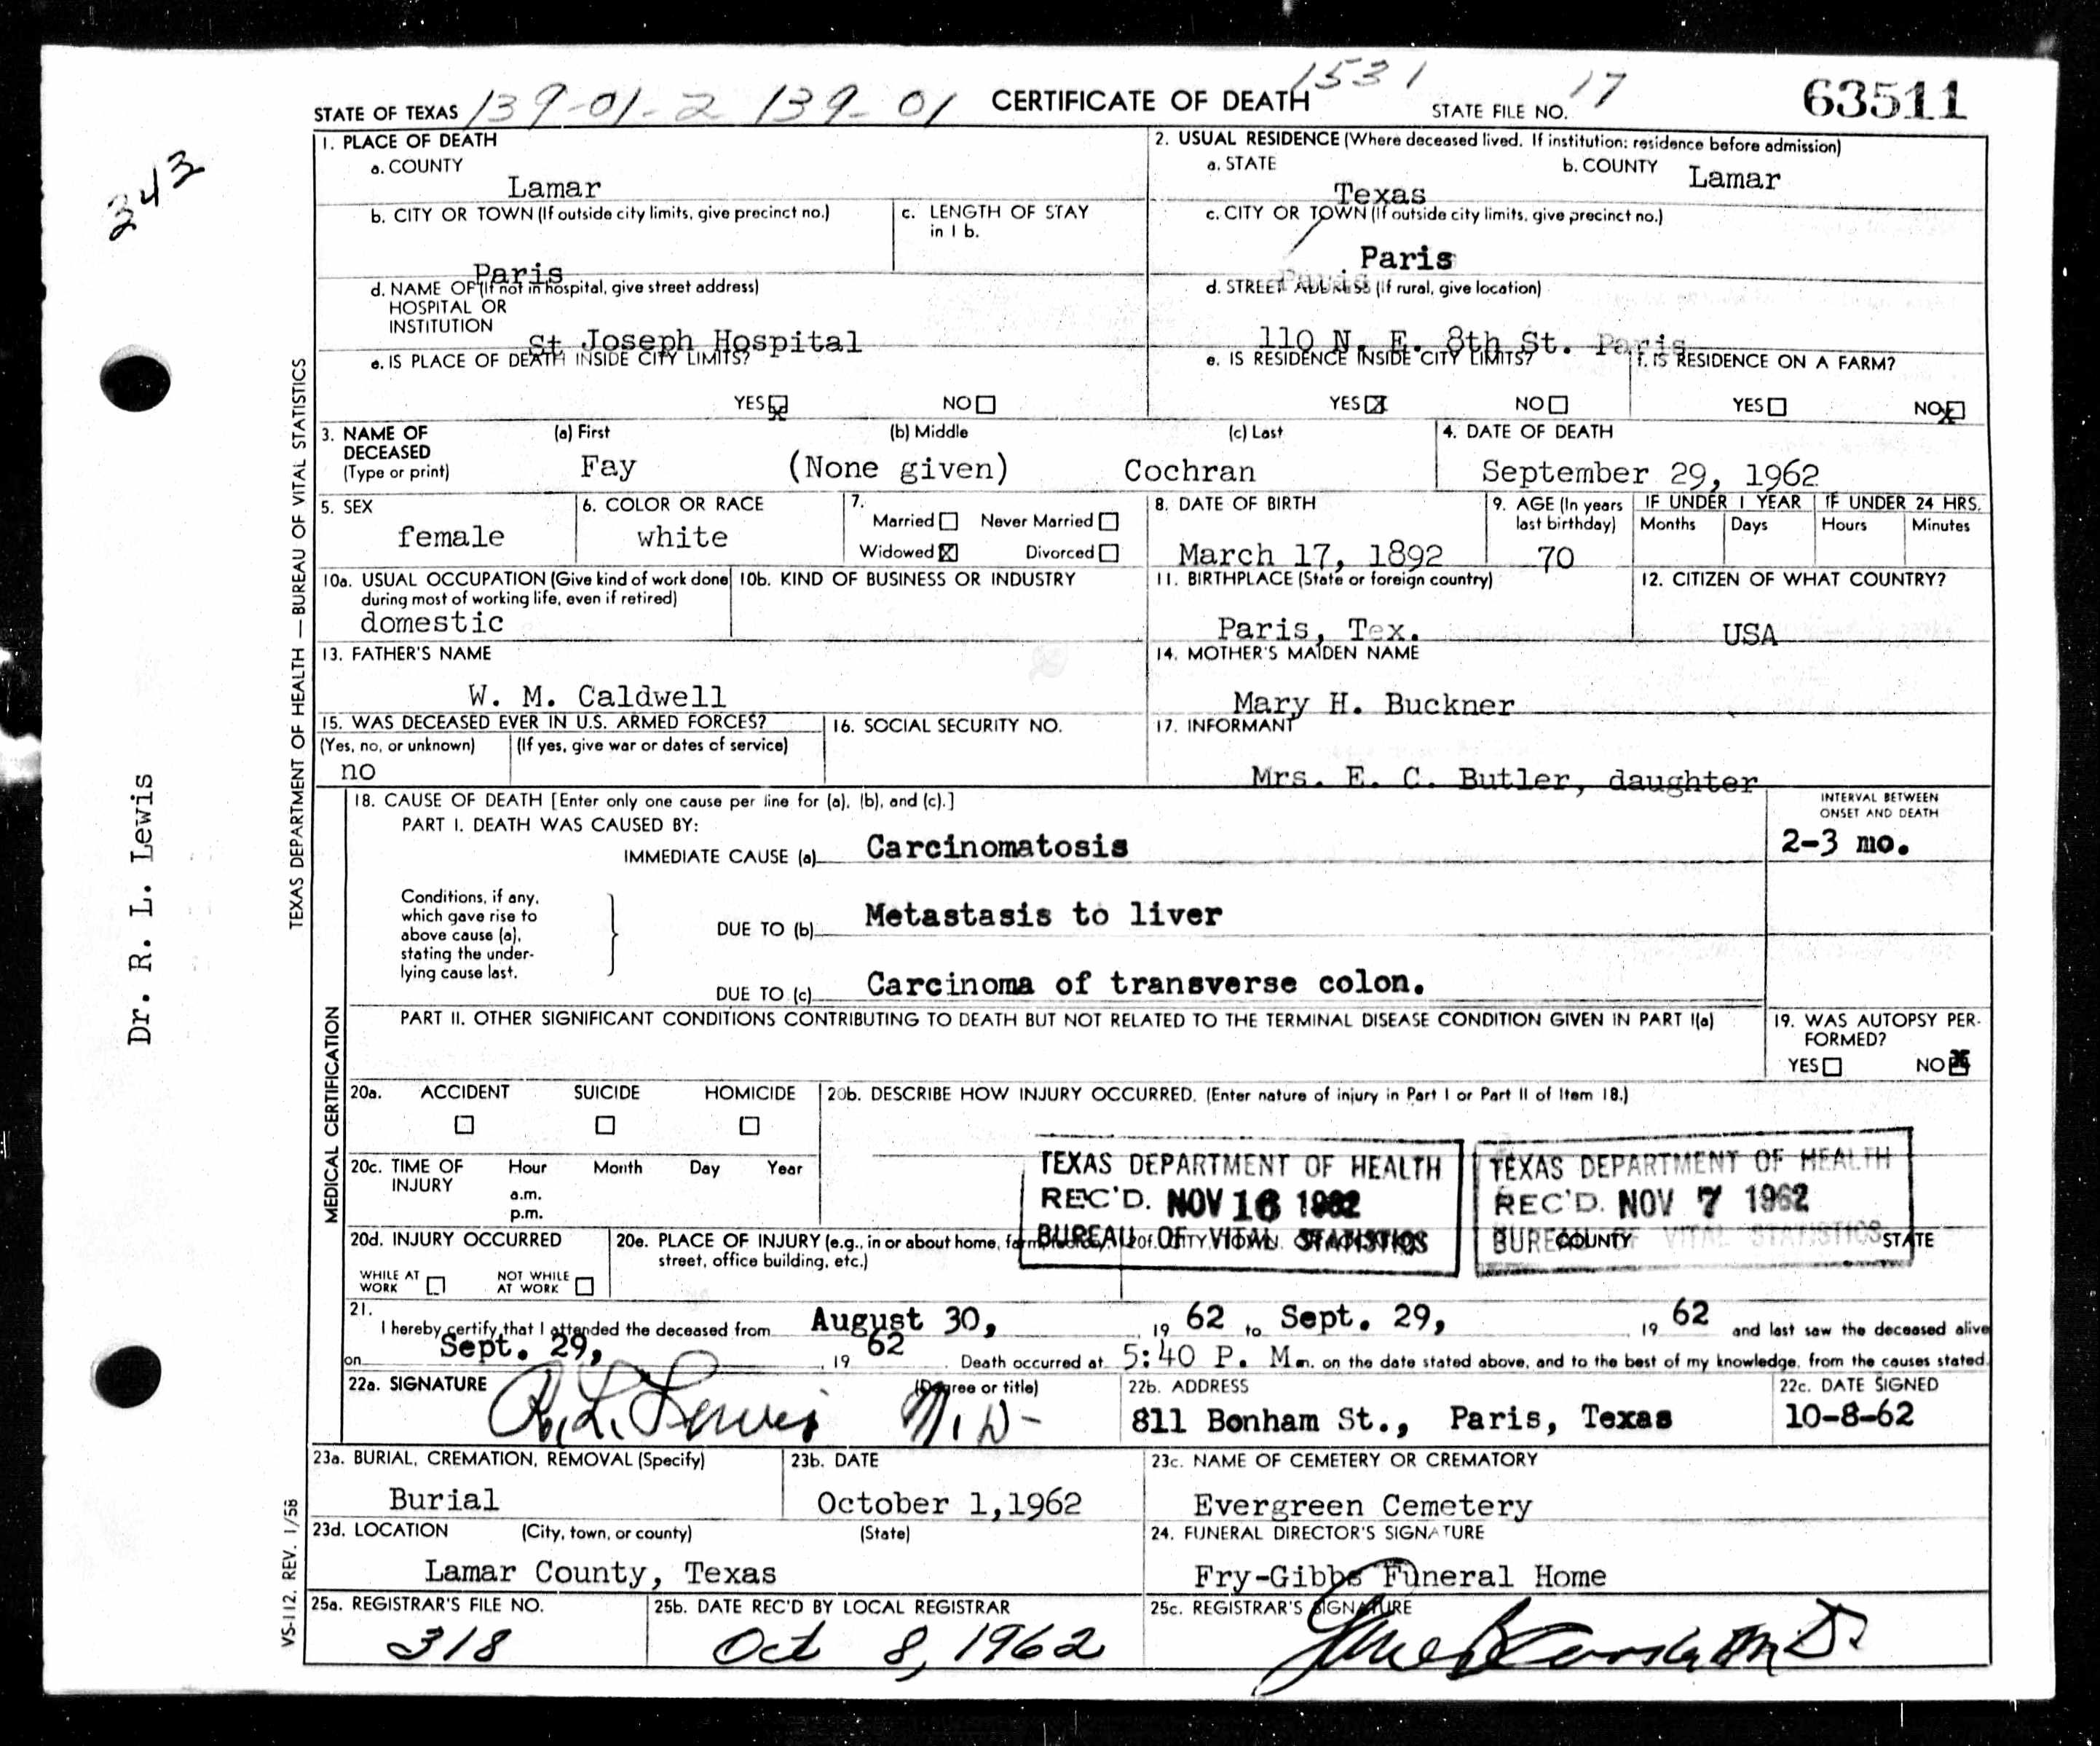 STATE OF TEXAS 139-01-2 139-01 CERTIFICATE OF DEATH 1531 STATE FILE NO. 17 63511
343
Dr. R. L. Lewis
TEXAS DEPARTMENT OF HEALTH — BUREAU OF VITAL STATISTICS
1. PLACE OF DEATH
a. COUNTY
Lamar
2. USUAL RESIDENCE (Where deceased lived. If institution: residence before admission)
a. STATE
Texas
b. COUNTY Lamar
b. CITY OR TOWN (If outside city limits, give precinct no.)
Paris
c. LENGTH OF STAY
in 1 b.
c. CITY OR TOWN (If outside city limits, give precinct no.)
Paris
d. NAME OF (If not in hospital, give street address)
HOSPITAL OR
INSTITUTION
St Joseph Hospital
d. STREET ADDRESS (If rural, give location)
Paris
110 N. E. 8th St. Paris
e. IS PLACE OF DEATH INSIDE CITY LIMITS?
YES X NO
e. IS RESIDENCE INSIDE CITY LIMITS?
YES X NO
f. IS RESIDENCE ON A FARM?
YES NO X
3. NAME OF
DECEASED
(Type or print)
(a) First (b) Middle (c) Last
Fay (None given) Cochran
4. DATE OF DEATH
September 29, 1962
5. SEX
female
6. COLOR OR RACE
white
7.
Married Never Married
Widowed X Divorced
8. DATE OF BIRTH
March 17, 1892
9. AGE (In years
last birthday)
70
IF UNDER 1 YEAR
Months Days
IF UNDER 24 HRS.
Hours Minutes
10a. USUAL OCCUPATION (Give kind of work done
during most of working life, even if retired)
domestic
10b. KIND OF BUSINESS OR INDUSTRY
11. BIRTHPLACE (State or foreign country)
Paris, Tex.
12. CITIZEN OF WHAT COUNTRY?
USA
13. FATHER'S NAME
W. M. Caldwell
14. MOTHER'S MAIDEN NAME
Mary H. Buckner
15. WAS DECEASED EVER IN U.S. ARMED FORCES?
(Yes, no, or unknown) (If yes, give war or dates of service)
no
16. SOCIAL SECURITY NO.
17. INFORMANT
Mrs. E. C. Butler, daughter
MEDICAL CERTIFICATION
18. CAUSE OF DEATH [Enter only one cause per line for (a), (b), and (c).]
INTERVAL BETWEEN
ONSET AND DEATH
PART I. DEATH WAS CAUSED BY:
IMMEDIATE CAUSE (a) Carcinomatosis
2-3 mo.
Conditions, if any,
which gave rise to
above cause (a),
stating the under-
lying cause last.
DUE TO (b) Metastasis to liver
DUE TO (c) Carcinoma of transverse colon.
PART II. OTHER SIGNIFICANT CONDITIONS CONTRIBUTING TO DEATH BUT NOT RELATED TO THE TERMINAL DISEASE CONDITION GIVEN IN PART I(a)
19. WAS AUTOPSY PER-
FORMED?
YES NO X
20a. ACCIDENT SUICIDE HOMICIDE
20b. DESCRIBE HOW INJURY OCCURRED. (Enter nature of injury in Part I or Part II of Item 18.)
20c. TIME OF
INJURY
Hour Month Day Year
a.m.
p.m.
TEXAS DEPARTMENT OF HEALTH
REC'D. NOV 16 1962
BUREAU OF VITAL STATISTICS
TEXAS DEPARTMENT OF HEALTH
REC'D. NOV 7 1962
BUREAU OF VITAL STATISTICS
20d. INJURY OCCURRED
WHILE AT
WORK
NOT WHILE
AT WORK
20e. PLACE OF INJURY (e.g., in or about home, farm,
street, office building, etc.)
20f. CITY, TOWN, COUNTY STATE
21.
I hereby certify that I attended the deceased from August 30, 19 62 to Sept. 29, 19 62 and last saw the deceased alive
on Sept. 29, 19 62. Death occurred at 5:40 P. M m. on the date stated above, and to the best of my knowledge, from the causes stated.
22a. SIGNATURE (Degree or title)
R. L. Lewis M.D-
22b. ADDRESS
811 Bonham St., Paris, Texas
22c. DATE SIGNED
10-8-62
23a. BURIAL, CREMATION, REMOVAL (Specify)
Burial
23b. DATE
October 1,1962
23c. NAME OF CEMETERY OR CREMATORY
Evergreen Cemetery
23d. LOCATION (City, town, or county) (State)
Lamar County, Texas
24. FUNERAL DIRECTOR'S SIGNATURE
Fry-Gibbs Funeral Home
25a. REGISTRAR'S FILE NO.
318
25b. DATE REC'D BY LOCAL REGISTRAR
Oct 8, 1962
25c. REGISTRAR'S SIGNATURE
M.D.
VS-112, REV. 1/58